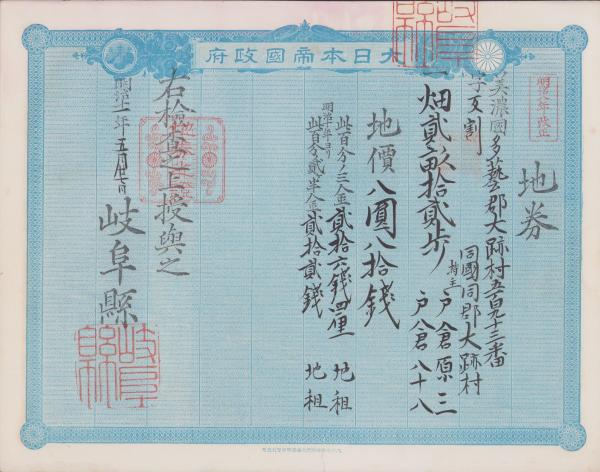 大日本帝國政府
地券
明治九年改正
美濃國多藝郡大跡村五百九十三番
字叉割
同國同郡大跡村
一畑貳畝拾貳歩
持主 戸倉原三
戸倉八十八
地價八圓八拾錢
此百分ノ三金貳拾六錢四厘 地租
明治十年ヨリ
此百分ノ貳半金貳拾貳錢 地租
右檢査之上授與之
明治十一年五月廿七日
岐阜縣
岐阜縣
岐阜縣